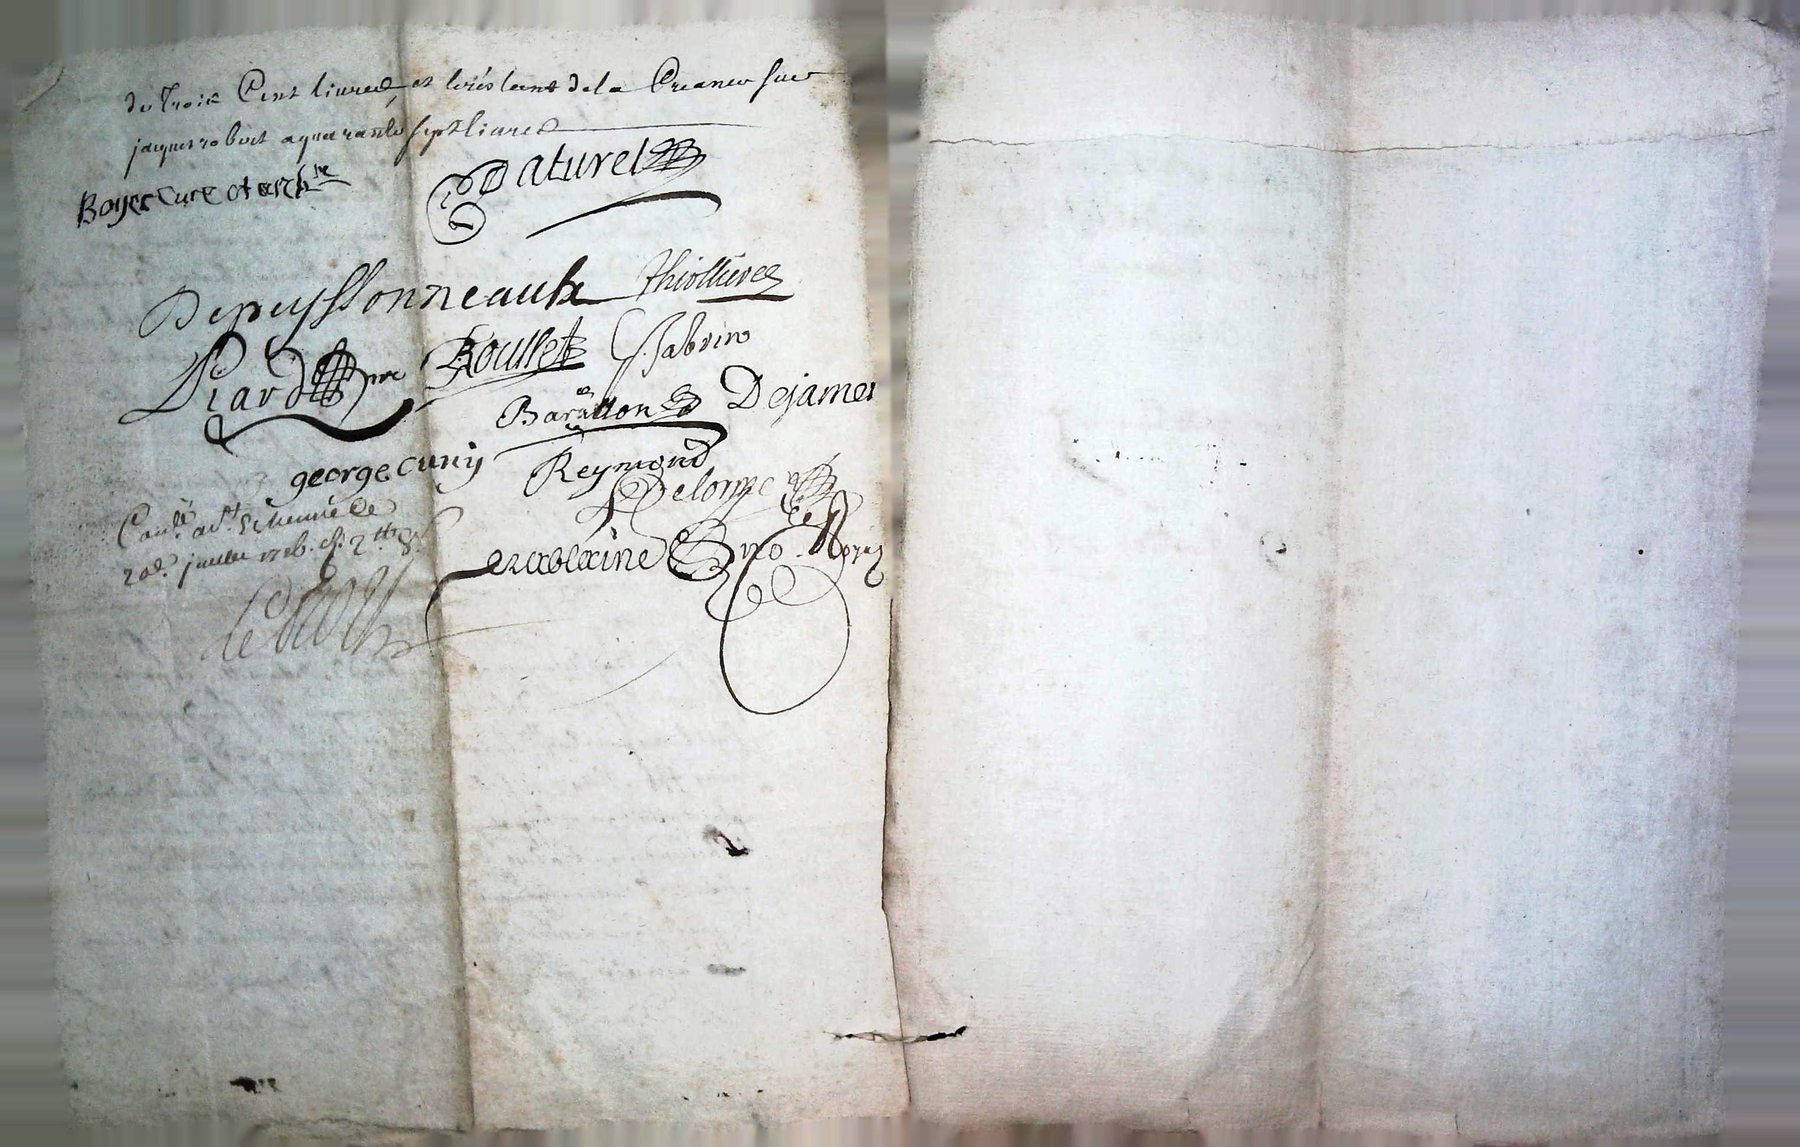 de Trois Cent livres, et le restant de la Creance sur
jacques robert a quarante sept livres
Boyer Curé et arch.re
Paturel
Depeyssonneaulx Thiollierez
Piard Roullet J. fabrino
Baraillon Dejames
george cuny Reymond
Delorme
Con.lé au St Etienne le
20e. 2 tt